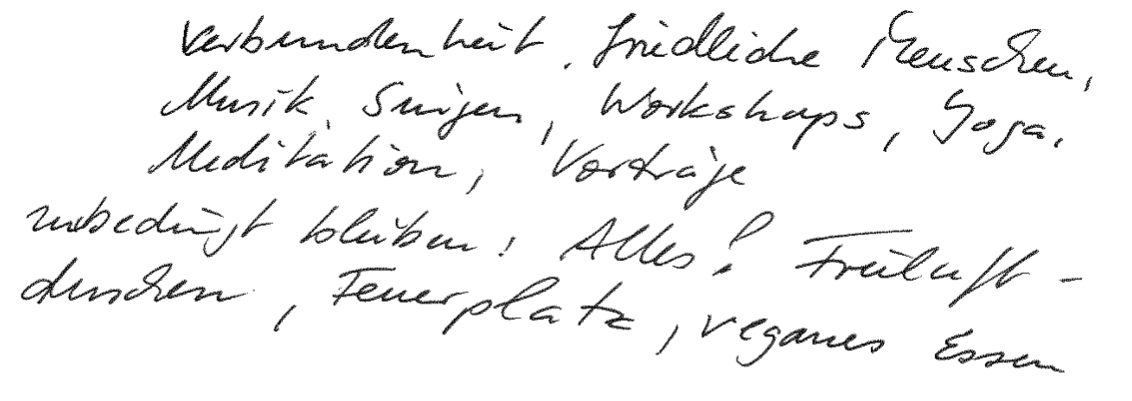 Verbundenheit, friedliche Menschen,
Musik, Singen, Workshops, Yoga,
Meditation, Vorträge
unbedingt bleiben: Alles! Freiluft-
duschen, Feuerplatz, veganes Essen